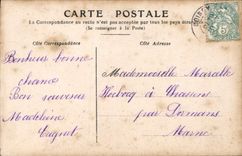 CARTE POSTALE
La Correspondance au recto n'est pas acceptée par tous les pays étrangers
(Se renseigner à la Poste)
Côté Correspondance
Côté Adresse
Bonheur bonne
chance
Bon souvenir
Madeleine
Mademoiselle Marcelle
à
par Dormans
Marne